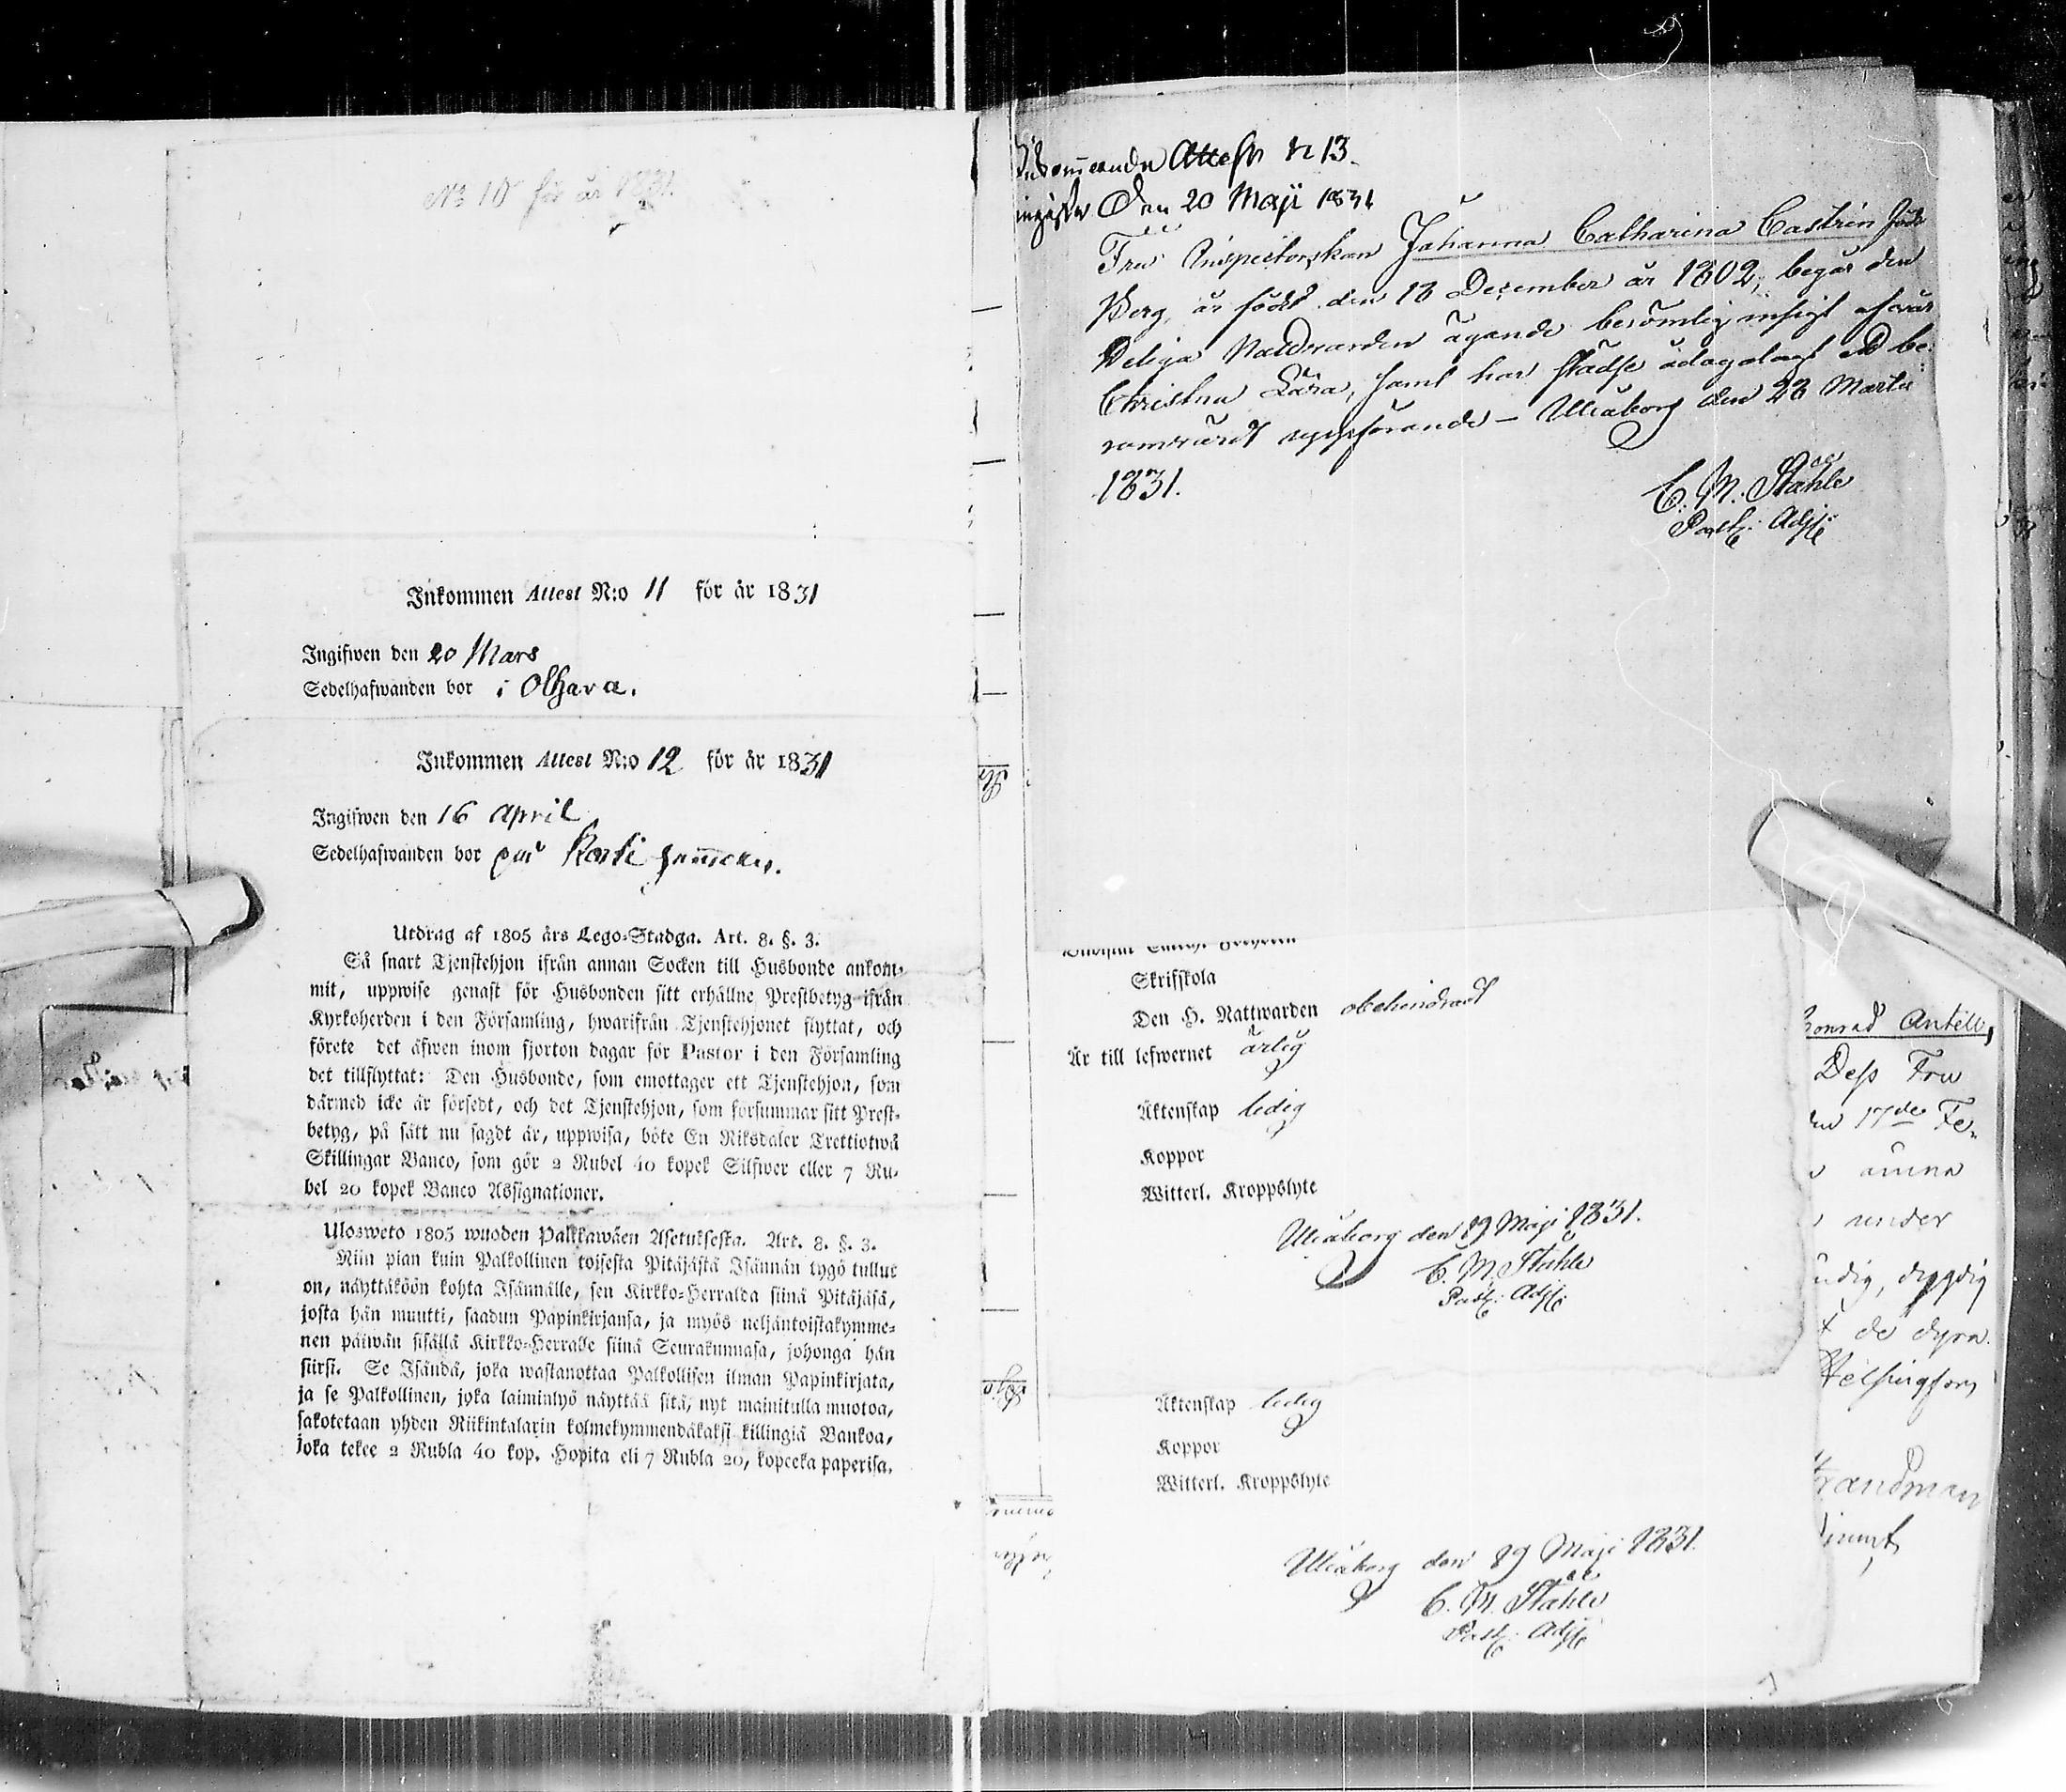 No 10 för år 1831.
Inkommen Attest N:o 11 för år 1831
Ingifwen den 20 Mars
Sedelhafwanden bor i Olhava.
Inkommen Attest N:o 12 för år 1831
Ingifwen den 16 April
Sedelhafwanden bor på
Utdrag af 1805 års Lego-Stadga. Art. 8. §. 3.
Så snart Tjenstehjon ifrån annan Socken till Husbonde ankom-
mit, uppwise genast för Husbonden sitt erhållne Prestbetyg ifrån
Kyrkoherden i den Församling, hwarifrån Tjenstehjonet flyttat, och
förete det äfwen inom fjorton dagar för Pastor i den Församling
det tillflyttat: Den Husbonde, som emottager ett Tjenstehjon, som
därmed icke är försedt, och det Tjenstehjon, som försummar sitt Prest-
betyg, på sätt nu sagdt är, uppwisa, böte En Riksdaler Trettiotwå
Skillingar Banco, som gör 2 Rubel 40 kopek Silfwer eller 7 Ru-
bel 20 kopek Banco Assignationer.
Ulosweto 1805 wuoden Palkkawäen Asetuksesta. Art. 8. §. 3.
Niin pian kuin Palkollinen toisesta Pitäjästä Isännän tygö tullut
on, näyttäköön kohta Isännälle, sen Kirkko-Herralda siinä Pitäjäsä,
josta hän muutti, saadun Papinkirjansa, ja myös neljäntoistakymme-
nen päiwän sisällä Kirkko-Herralle siinä Seurakunnasa, johonga hän
siirsi. Se Isändä, joka wastanottaa Palkollisen ilman Papinkirjata,
ja se Palkollinen, joka laiminlyö näyttää sitä, nyt mainitulla muotoa,
sakotetaan yhden Riikintalarin kolmekymmendäkaksi killingiä Bankoa,
joka tekee 2 Rubla 40 kop. Hopita eli 7 Rubla 20, kopeeka paperisa.
Attest N 13.
Den 20 Maji 1831
Fru Inspectorskan Johanna Catharina Castrén född
Berg, är född den 18 December år 1802, begår den
Heliga Nattvarden ägande berömlig insigt af vår
Christna Lära, samt har städse ådagalagt ett be-
römvärdt uppförande - Uleåborg den 28 Martii
1831.
C. M. Ståhle
Past: Adj:
Skrifskola
Den H. Nattwarden obehindradt
Är till lefwernet ärlig
Äktenskap ledig
Koppor
Witterl. Kroppslyte
Uleåborg den 19 Maji 1831.
C. M. Ståhle
Past: Adj:
Äktenskap ledig
Koppor
Witterl. Kroppslyte
Uleåborg den 19 Maji 1831.
C. M. Ståhle
Past: Adj:
Conrad Antell,
Dess Fru
17de Fe-
under
dygdig
de dyra
Helsingfors